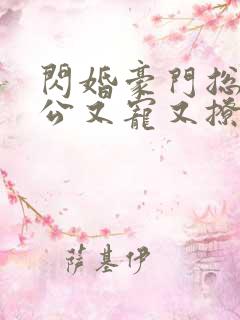 閃婚豪門總
公又寵又撩
薩基伊